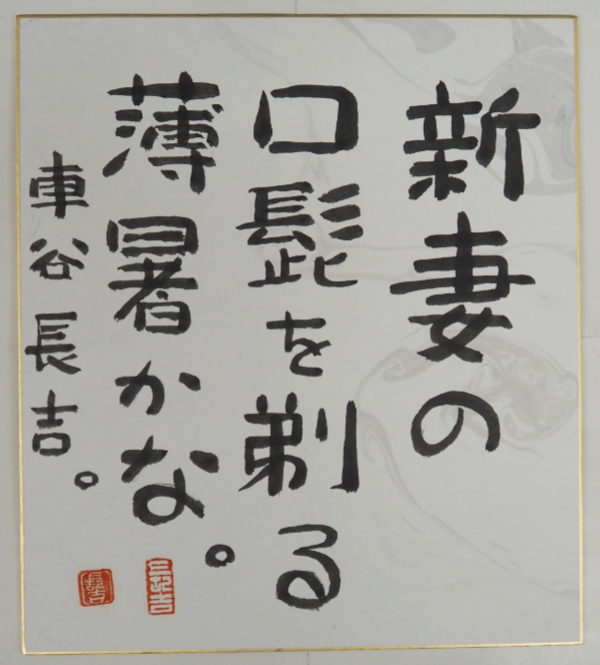 新妻の
口髭を剃る
薄暑かな。
車谷長吉。
長吉
長吉